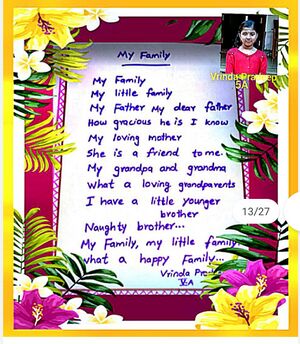 My Family
Vrinda Pradeep
5A
My Family
My little family
My Father My dear father
How gracious he is I know
My loving mother
She is a friend to me.
My grandpa and grandma
What a loving grandparents
I have a little younger
brother
13/27
Naughty brother...
My Family, my little family
what a happy Family...
Vrinda
V.A